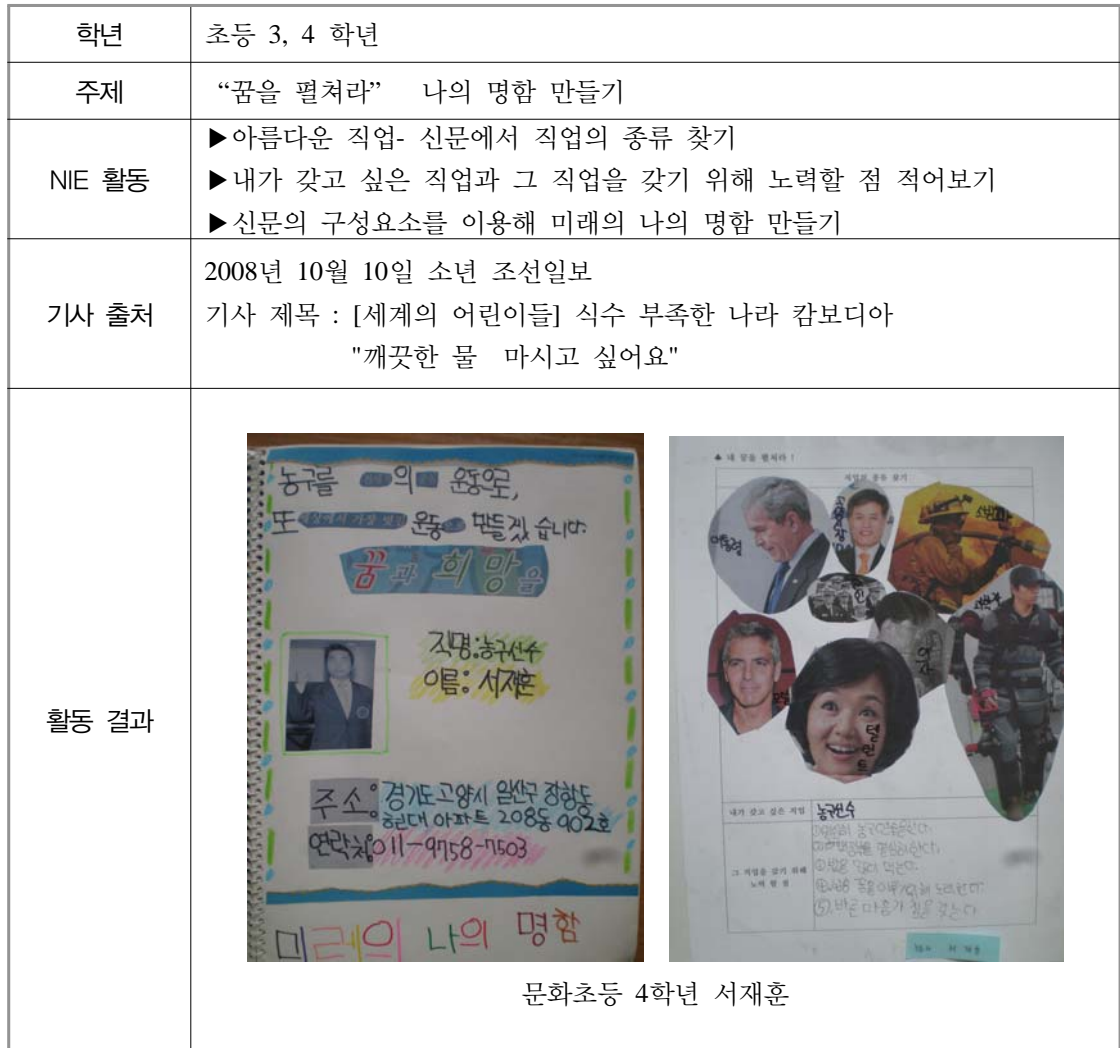 학년 초등 3, 4 학년
주제 “꿈을 펼쳐라” 나의 명함 만들기
NIE 활동
▶아름다운 직업- 신문에서 직업의 종류 찾기
▶내가 갖고 싶은 직업과 그 직업을 갖기 위해 노력할 점 적어보기
▶신문의 구성요소를 이용해 미래의 나의 명함 만들기
기사 출처
2008년 10월 10일 소년 조선일보
기사 제목 : [세계의 어린이들] 식수 부족한 나라 캄보디아
"깨끗한 물 마시고 싶어요"
활동 결과
농구를 의 운동으로,
또 세상에서 가장 멋진 운동 만들겠습니다.
꿈과 희망을
직명:농구선수
이름: 서재훈
주소: 경기도 고양시 일산구 장항동
현대 아파트 208동 902호
연락처:011-9758-7503
미래의 나의 명함
♣ 내 꿈을 펼쳐라 !
직업의 종류 찾기
대통령
소방관
군인
의사
탤런트
내가 갖고 싶은 직업 농구선수
그 직업을 갖기 위해
노력 할 점
①열심히 농구연습을한다.
문화초등 4학년 서재훈